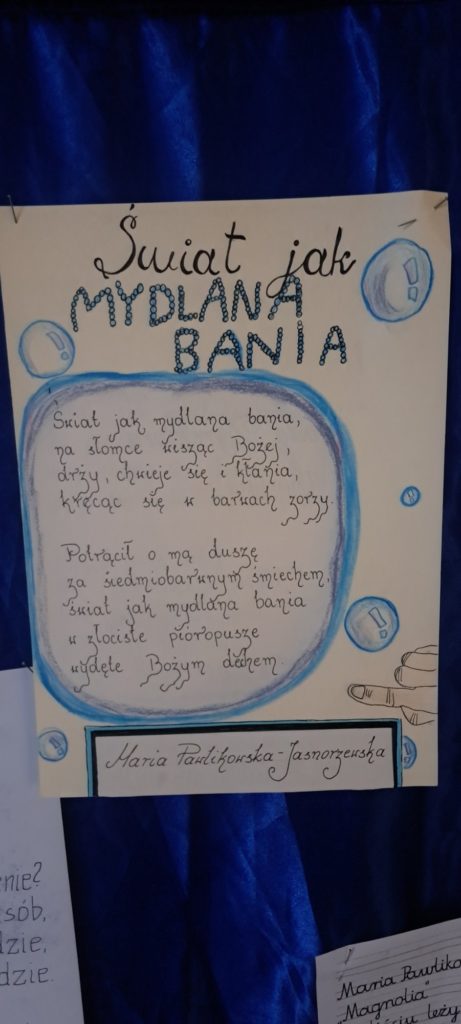 Świat jak
MYDLANA
BANIA
Świat jak mydlana bania,
na słomce wisząc Bożej,
drży, chwieje się i kłania,
kręcąc się w barwach zorzy.
Potrącił o mą duszę
za siedmiobarwnym śmiechem,
świat jak mydlana bania
w złociste pióropusze
wydęte Bożym dechem.
Maria Pawlikowska-Jasnorzewska
nie?
sób,
dzie,
dzie.
Maria Pawliko
"Magnolia"
leży